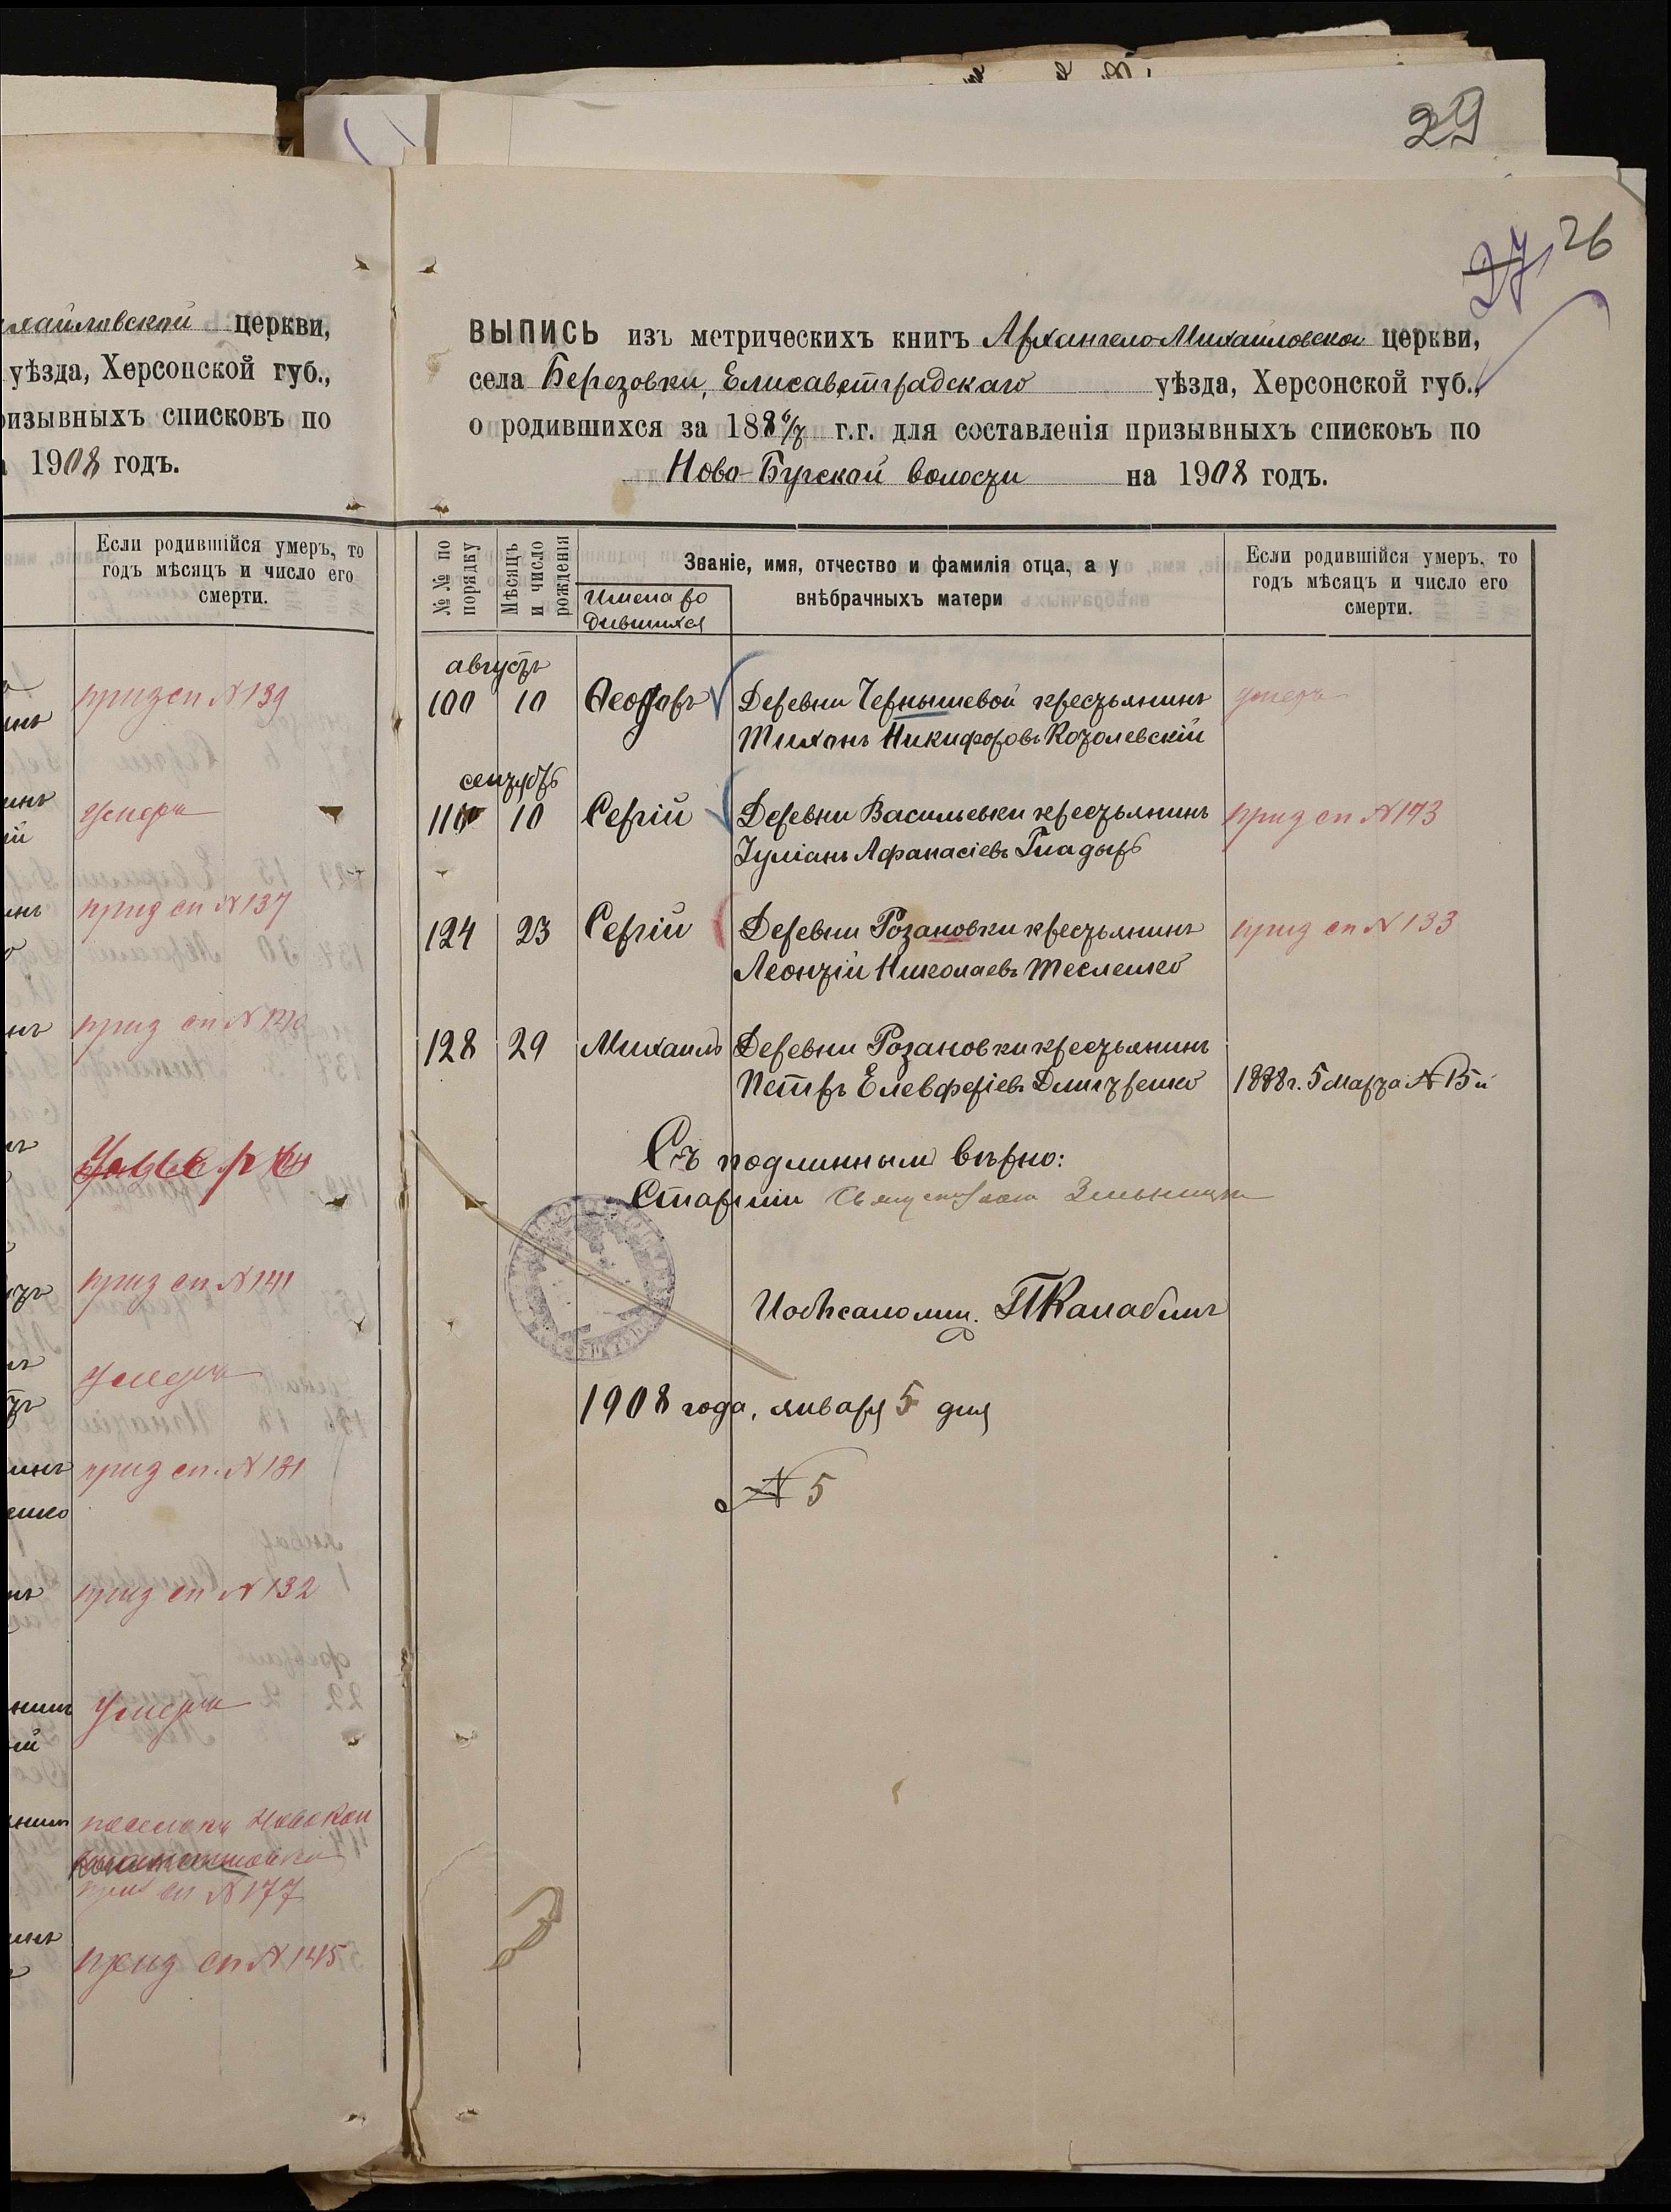 29
27 26
хайловской церкви,
уѣзда, Херсонской губ.,
ризывныхъ списковъ по
1908 годъ.
Если родившійся умеръ, то
годъ мѣсяцъ и число его
смерти.
приз сп № 139
Умеръ
приз сп № 137
приз сп №
Умеръ
приз сп № 141
Умеръ
приз сп. № 131
приз сп № 132
Умеръ
сп № 177
приз сп № 145
ВЫПИСЬ изъ метрическихъ книгъ Архангело-Михайловской церкви,
села Березовки, Елисаветградскаго уѣзда, Херсонской губ.,
о родившихся за 1886/7 г.г. для составленія призывныхъ списковъ по
Ново-Бугской волости на 1908 годъ.
№№ по порядку
Мѣсяцъ и число рожденія
Имена ро
дившихся
Званіе, имя, отчество и фамилія отца, а у
внѣбрачныхъ матери
Если родившійся умеръ, то
годъ мѣсяцъ и число его
смерти.
августъ
100 10 Ѳеодоръ Деревни Чернышевой крестьянинъ умеръ
Тихонъ Никифоровъ Козолевскій
сентябрь
110 10 Сергій Деревни Васильевки крестьянинъ приз сп № 143
Іуліанъ Афанасіевъ Гладырь
124 23 Сергій Деревни Розановки крестьянинъ приз сп № 133
Леонтій Николаевъ Тесленко
128 29 Михаилъ Деревни Розановки крестьянинъ
Петръ Елевферіевъ Дмитренко 1888 г. 5 марта № 15й
Съ подлиннымъ вѣрно:
Старшій
Псаломщ.
1908 года, января 5 дня
№ 5